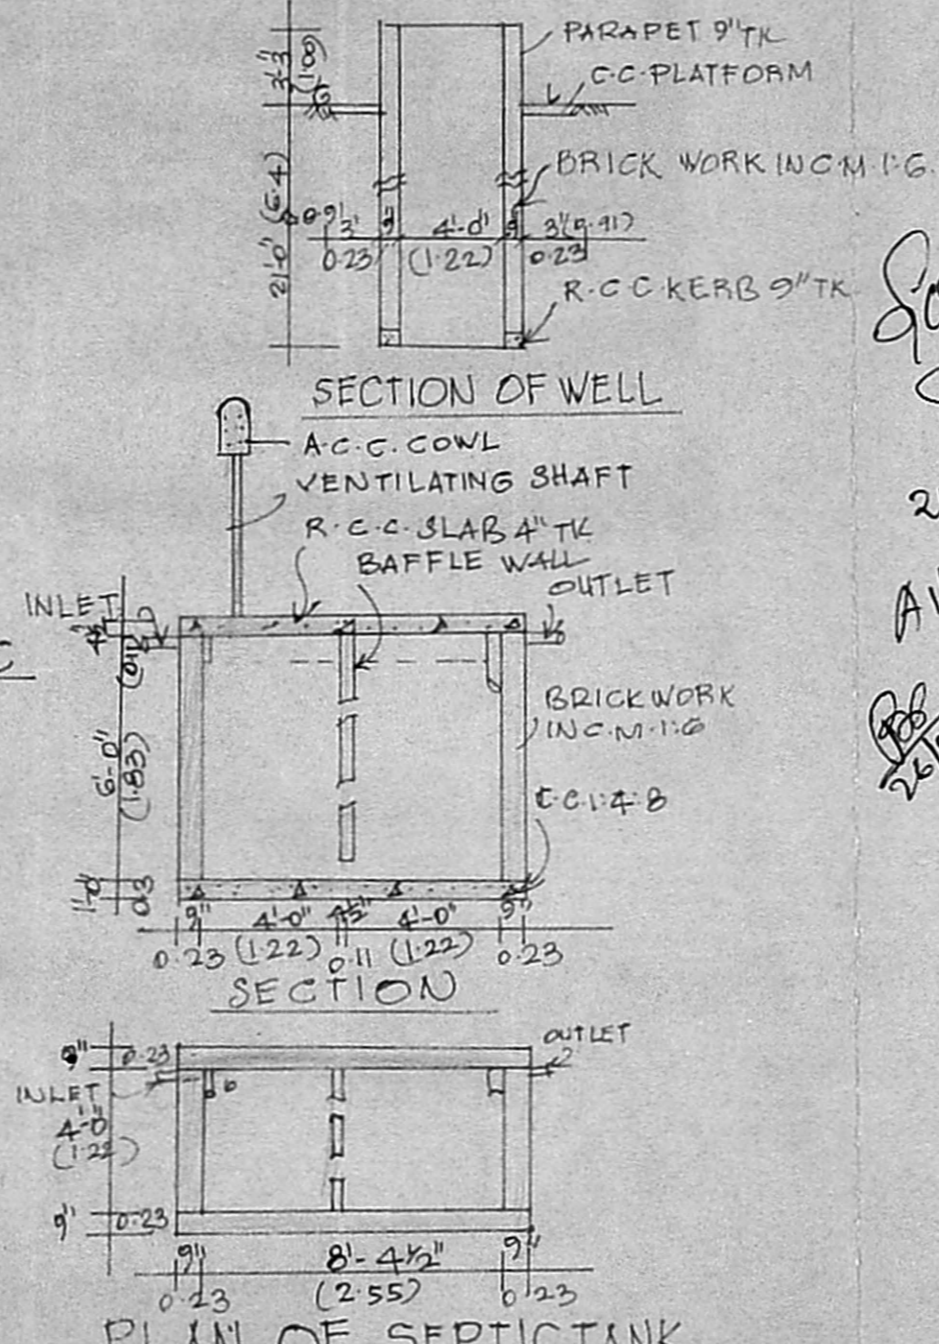 PARAPET 9" TK
C.C. PLATFORM
3'-3"
BRICK WORK IN C.M. 1:6.
21'-0" (6.4)
3' 9" 4'-0" 9" 3'
0.23 (1.22) 0.23
R.C.C. KERB 9" TK
SECTION OF WELL
A.C.C. COWL
VENTILATING SHAFT
R.C.C. SLAB 4" TK
BAFFLE WALL
OUTLET
INLET
BRICK WORK
IN C.M. 1:6
6'-0"
(1.83)
C.C. 1:4:8
1'-0" 0.3
9" 4'-0" 4½" 4'-0" 9"
0.23 (1.22) 0.11 (1.22) 0.23
SECTION
OUTLET
9" 0.23
INLET
4'-0"
(1.22)
9" 0.23
9" 8'-4½" 9"
0.23 (2.55) 0.23
PLAN OF SEPTIC TANK